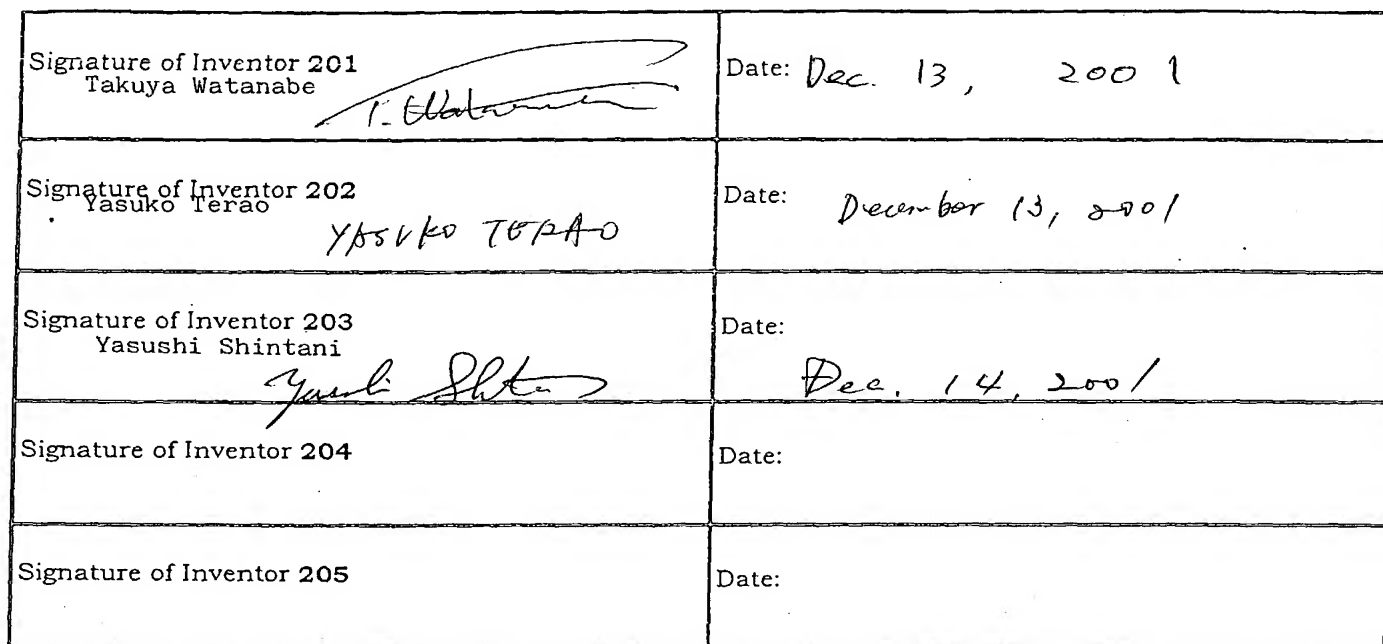 Signature of Inventor 201
Takuya Watanabe
T. Watanabe
Date: Dec. 13, 2001
Signature of Inventor 202
Yasuko Terao
YASUKO TERAO
Date: December 13, 2001
Signature of Inventor 203
Yasushi Shintani
Date:
Dec. 14, 2001
Signature of Inventor 204
Date:
Signature of Inventor 205
Date: